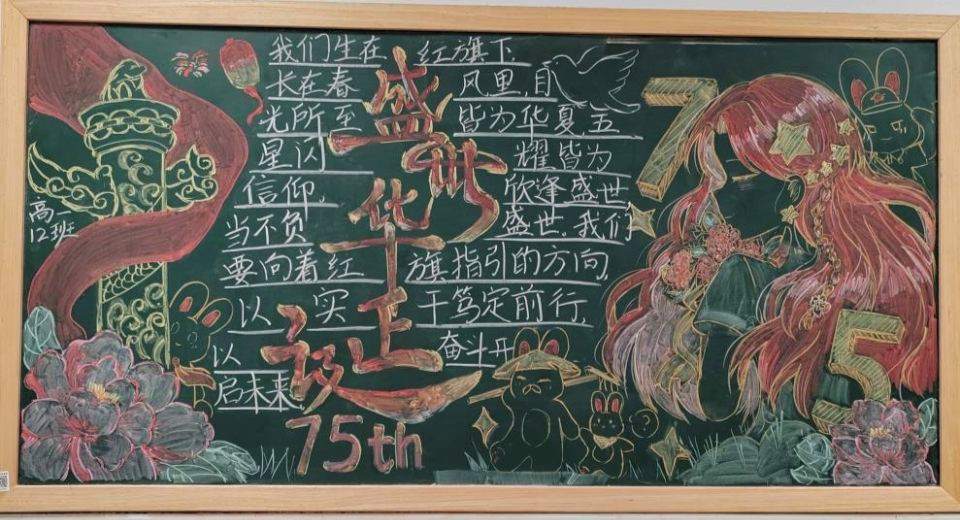 我们生在 红旗下,
长在春 风里,目
光所至 皆为华夏,五
星闪 耀皆为
信仰. 欣逢盛世
当不负 盛世.我们
要向着红 旗指引的方向,
以 实 干笃定前行,
以 奋斗开
启未来.
盛世华诞
75th
高一
12班
7
5